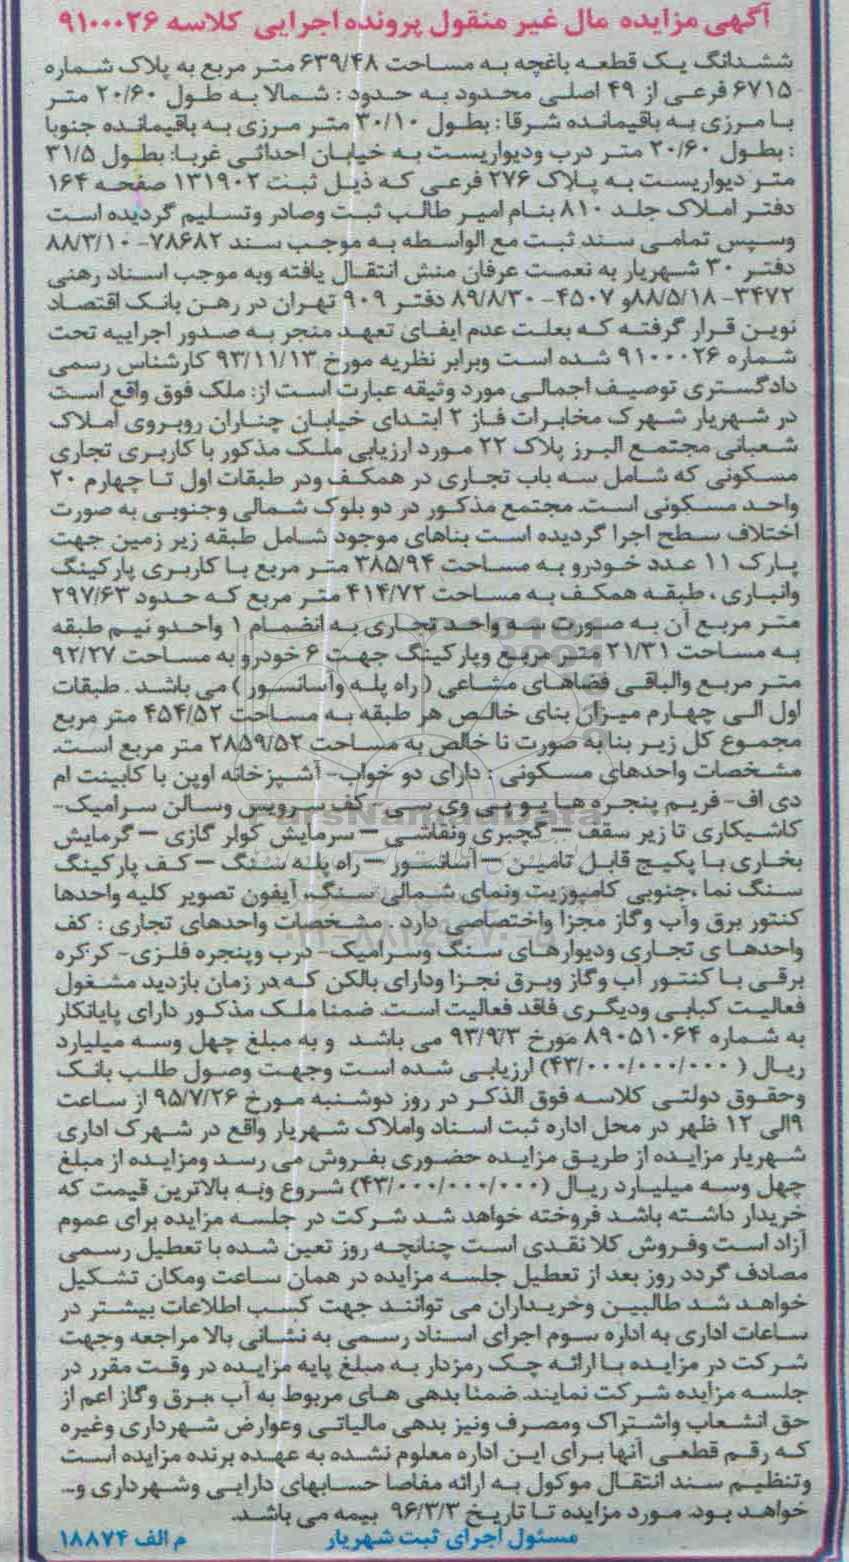 آگهی مزایده مال غیر منقول پرونده اجرایی کلاسه ۹۱۰۰۰۲۶
ششدانگ یک قطعه باغچه به مساحت ۶۳۹/۴۸ متر مربع به پلاک شماره
۶۷۱۵ فرعی از ۴۹ اصلی محدود به حدود : شمالا به طول ۲۰/۶۰ متر
با مرزی به باقیمانده شرقا : بطول ۳۰/۱۰ متر مرزی به باقیمانده جنوبا
: بطول ۲۰/۶۰ متر درب ودیواریست به خیابان احداثی غربا: بطول ۳۱/۵
متر دیواریست به پلاک ۲۷۶ فرعی که ذیل ثبت ۱۳۱۹۰۲ صفحه ۱۶۴
دفتر املاک جلد ۸۱۰ بنام امیر طالب ثبت وصادر وتسلیم گردیده است
وسپس تمامی سند ثبت مع الواسطه به موجب سند ۷۸۶۸۲- ۸۸/۳/۱۰
دفتر ۳۰ شهریار به نعمت عرفان منش انتقال یافته وبه موجب اسناد رهنی
۳۴۷۲- ۸۸/۵/۱۸و ۴۵۰۷- ۸۹/۸/۳۰ دفتر ۹۰۹ تهران در رهن بانک اقتصاد
نوین قرار گرفته که بعلت عدم ایفای تعهد منجر به صدور اجراییه تحت
شماره ۹۱۰۰۰۲۶ شده است وبرابر نظریه مورخ ۹۳/۱۱/۱۳ کارشناس رسمی
دادگستری توصیف اجمالی مورد وثیقه عبارت است از: ملک فوق واقع است
در شهریار شهرک مخابرات فاز ۲ ابتدای خیابان چناران روبروی املاک
شعبانی مجتمع البرز پلاک ۲۲ مورد ارزیابی ملک مذکور با کاربری تجاری
مسکونی که شامل سه باب تجاری در همکف ودر طبقات اول تا چهارم ۲۰
واحد مسکونی است. مجتمع مذکور در دو بلوک شمالی وجنوبی به صورت
اختلاف سطح اجرا گردیده است بناهای موجود شامل طبقه زیر زمین جهت
پارک ۱۱ عدد خودرو به مساحت ۳۸۵/۹۴ متر مربع با کاربری پارکینگ
وانباری ، طبقه همکف به مساحت ۴۱۴/۷۲ متر مربع که حدود ۲۹۷/۶۳
متر مربع آن به صورت سه واحد تجاری به انضمام ۱ واحدو نیم طبقه
به مساحت ۲۱/۳۱ متر مربع وپارکینگ جهت ۶ خودرو به مساحت ۹۲/۲۷
متر مربع والباقی فضاهای مشاعی ( راه پله وآسانسور ) می باشد . طبقات
اول الی چهارم میزان بنای خالص هر طبقه به مساحت ۴۵۴/۵۲ متر مربع
مجموع کل زیر بنا به صورت نا خالص به مساحت ۲۸۵۹/۵۲ متر مربع است.
مشخصات واحدهای مسکونی : دارای دو خواب- آشپزخانه اوپن با کابینت ام
دی اف- فریم پنجره ها یو پی وی سی – کف سرویس وسالن سرامیک-
کاشیکاری تا زیر سقف – گچبری ونقاشی – سرمایش کولر گازی – گرمایش
بخاری با پکیج قابل تامین – آسانسور – راه پله سنگ – کف پارکینگ
سنگ نما ،جنوبی کامپوزیت ونمای شمالی سنگ، آیفون تصویر کلیه واحدها
کنتور برق وآب وگاز مجزا واختصاصی دارد . مشخصات واحدهای تجاری : کف
واحدها ی تجاری ودیوارهای سنگ وسرامیک- درب وپنجره فلزی- کرکره
برقی با کنتور آب وگاز وبرق نجزا ودارای بالکن که در زمان بازدید مشغول
فعالیت کبابی ودیگری فاقد فعالیت است. ضمنا ملک مذکور دارای پایانکار
به شماره ۸۹۰۵۱۰۶۴ مورخ ۹۳/۹/۳ می باشد و به مبلغ چهل وسه میلیارد
ریال ( ۴۳/۰۰۰/۰۰۰/۰۰۰) ارزیابی شده است وجهت وصول طلب بانک
وحقوق دولتی کلاسه فوق الذکر در روز دوشنبه مورخ ۹۵/۷/۲۶ از ساعت
۹الی ۱۲ ظهر در محل اداره ثبت اسناد واملاک شهریار واقع در شهرک اداری
شهریار مزایده از طریق مزایده حضوری بفروش می رسد ومزایده از مبلغ
چهل وسه میلیارد ریال (۴۳/۰۰۰/۰۰۰/۰۰۰) شروع وبه بالاترین قیمت که
خریدار داشته باشد فروخته خواهد شد شرکت در جلسه مزایده برای عموم
آزاد است وفروش کلا نقدی است چنانچه روز تعین شده با تعطیل رسمی
مصادف گردد روز بعد از تعطیل جلسه مزایده در همان ساعت ومکان تشکیل
خواهد شد طالبین وخریداران می توانند جهت کسب اطلاعات بیشتر در
ساعات اداری به اداره سوم اجرای اسناد رسمی به نشانی بالا مراجعه وجهت
شرکت در مزایده با ارائه چک رمزدار به مبلغ پایه مزایده در وقت مقرر در
جلسه مزایده شرکت نمایند. ضمنا بدهی های مربوط به آب ،برق وگاز اعم از
حق انشعاب واشتراک ومصرف ونیز بدهی مالیاتی وعوارض شهرداری وغیره
که رقم قطعی آنها برای این اداره معلوم نشده به عهده برنده مزایده است
وتنظیم سند انتقال موکول به ارائه مفاصا حسابهای دارایی وشهرداری و...
خواهد بود. مورد مزایده تا تاریخ ۹۶/۳/۳ بیمه می باشد.
مسئول اجرای ثبت شهریار م الف ۱۸۸۷۴
ParsNamadData